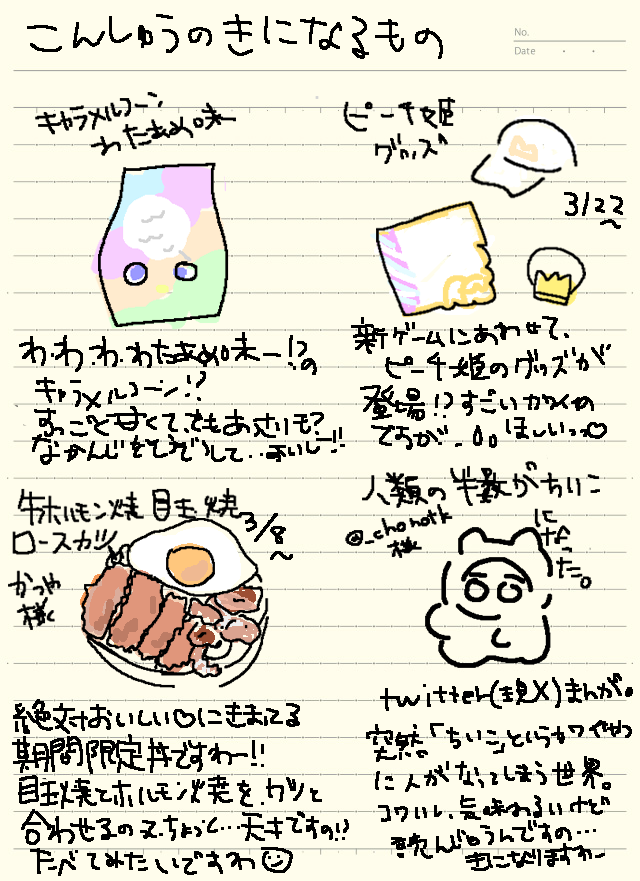 こんしゅうのきになるもの
No.
Date
キャラメルコーン
わたあめ味ー
わ・わ・わ・わたあめ味ー!?の
キャラメルコーン!?
すっごく甘くて、でもあっさりも?
なかんじをそうぞうして…おいしー!!
ピーチ姫
グッズ
3/22
~
新ゲームにあわせて、
ピーチ姫のグッズが
登場!?すごいカワイイの
ですが…。ほしいっっ♡
牛ホルモン焼 目玉焼
ロースカツ
3/8~
かつや
様
絶対おいしい♡にきまってる
期間限定丼ですわー!!
目玉焼とホルモン焼を、グッと
合わせるの、え、ちょっと…天才ですの!?
たべてみたいですわ☺
人類の半数がちいこ
になった。
@_chonotk
様
twitter(現X)まんが。
突然「ちいこ」というカワイイやつ
に人がなってしまう世界。
コワいし、気味わるいけど
読んじゃうんですの…
きになりますわー